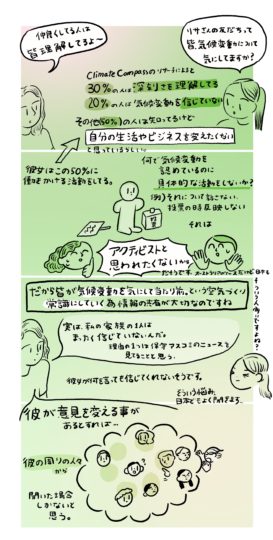 リサさんの友だちって
皆、気候変動について
気にしてますか?
仲良くしてる人は
皆理解してるよ〜
Climate Compassのリサーチによると
30%の人は深刻さを理解してる
20%の人は気候変動を信じていない
その他(50%)の人は知ってるけど
自分の生活やビジネスを変えたくない
と思っているらしい。
彼女はこの50%に
働きかける活動をしてる。
何で気候変動を
認めているのに
具体的な活動をしないか?
例)それについて話さない
投票の時反映しない
それは
アクティビストと
思われたくないから
だそうです。
だから皆が「気候変動を気にして当たり前」という空気づくり
常識にしていく為、情報の共有が大切なのですね
実は、私の家族の1人は
まったく信じていないんだ。
理由の1つは保守マスコミのニュースを
見てることと思う。
彼女が何を言っても信じてくれないそうです。
そういう悩み、
日本でもよく聞きます。
彼が意見を変える事が
あるとすれば…
彼の周りの人々
から
聞いた場合
しかないと
思う。